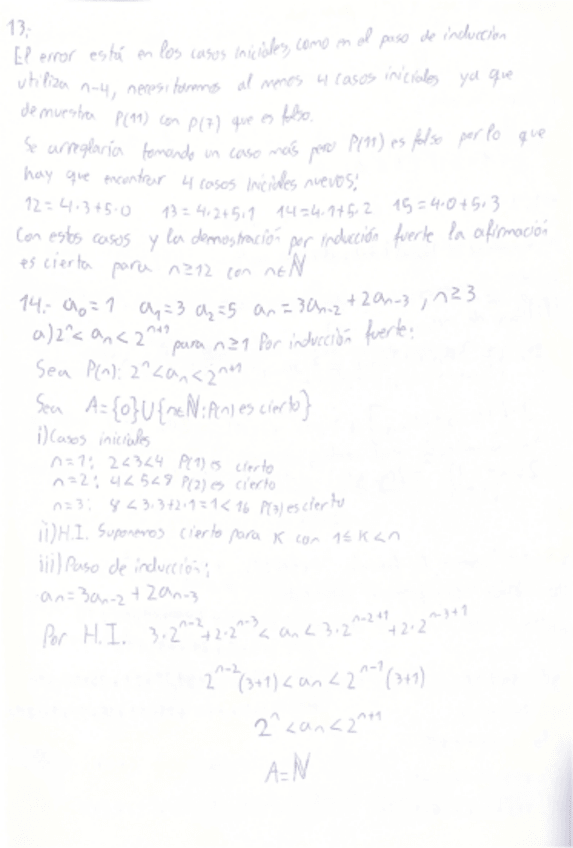 13.-
El error está en los casos iniciales, como en el paso de inducción
utiliza n-4, necesitaremos al menos 4 casos iniciales ya que
demuestra P(11) con P(7) que es falso.
Se arreglaría tomando un caso más pero P(11) es falso por lo que
hay que encontrar 4 casos iniciales nuevos:
12=4·3+5·0 13=4·2+5·1 14=4·1+5·2 15=4·0+5·3
Con estos casos y la demostración por inducción fuerte la afirmación
es cierta para n≥12 con n∈ℕ
14.- a₀=1 a₁=3 a₂=5 aₙ=3aₙ₋₂+2aₙ₋₃, n≥3
a) 2ⁿ<aₙ<2ⁿ⁺¹ para n≥1 Por inducción fuerte:
Sea P(n): 2ⁿ<aₙ<2ⁿ⁺¹
Sea A={0}∪{n∈ℕ: P(n) es cierto}
i) Casos iniciales
n=1: 2<3<4 P(1) es cierto
n=2: 4<5<8 P(2) es cierto
n=3: 8<3·3+2·1=1<16 P(3) es cierto
ii) H.I. Suponemos cierto para K con 1≤K<n
iii) Paso de inducción:
aₙ=3aₙ₋₂+2aₙ₋₃
Por H.I. 3·2ⁿ⁻²+2·2ⁿ⁻³<aₙ<3·2ⁿ⁻²⁺¹+2·2ⁿ⁻³⁺¹
2ⁿ⁻²(3+1)<aₙ<2ⁿ⁻¹(3+1)
2ⁿ<aₙ<2ⁿ⁺¹
A=ℕ